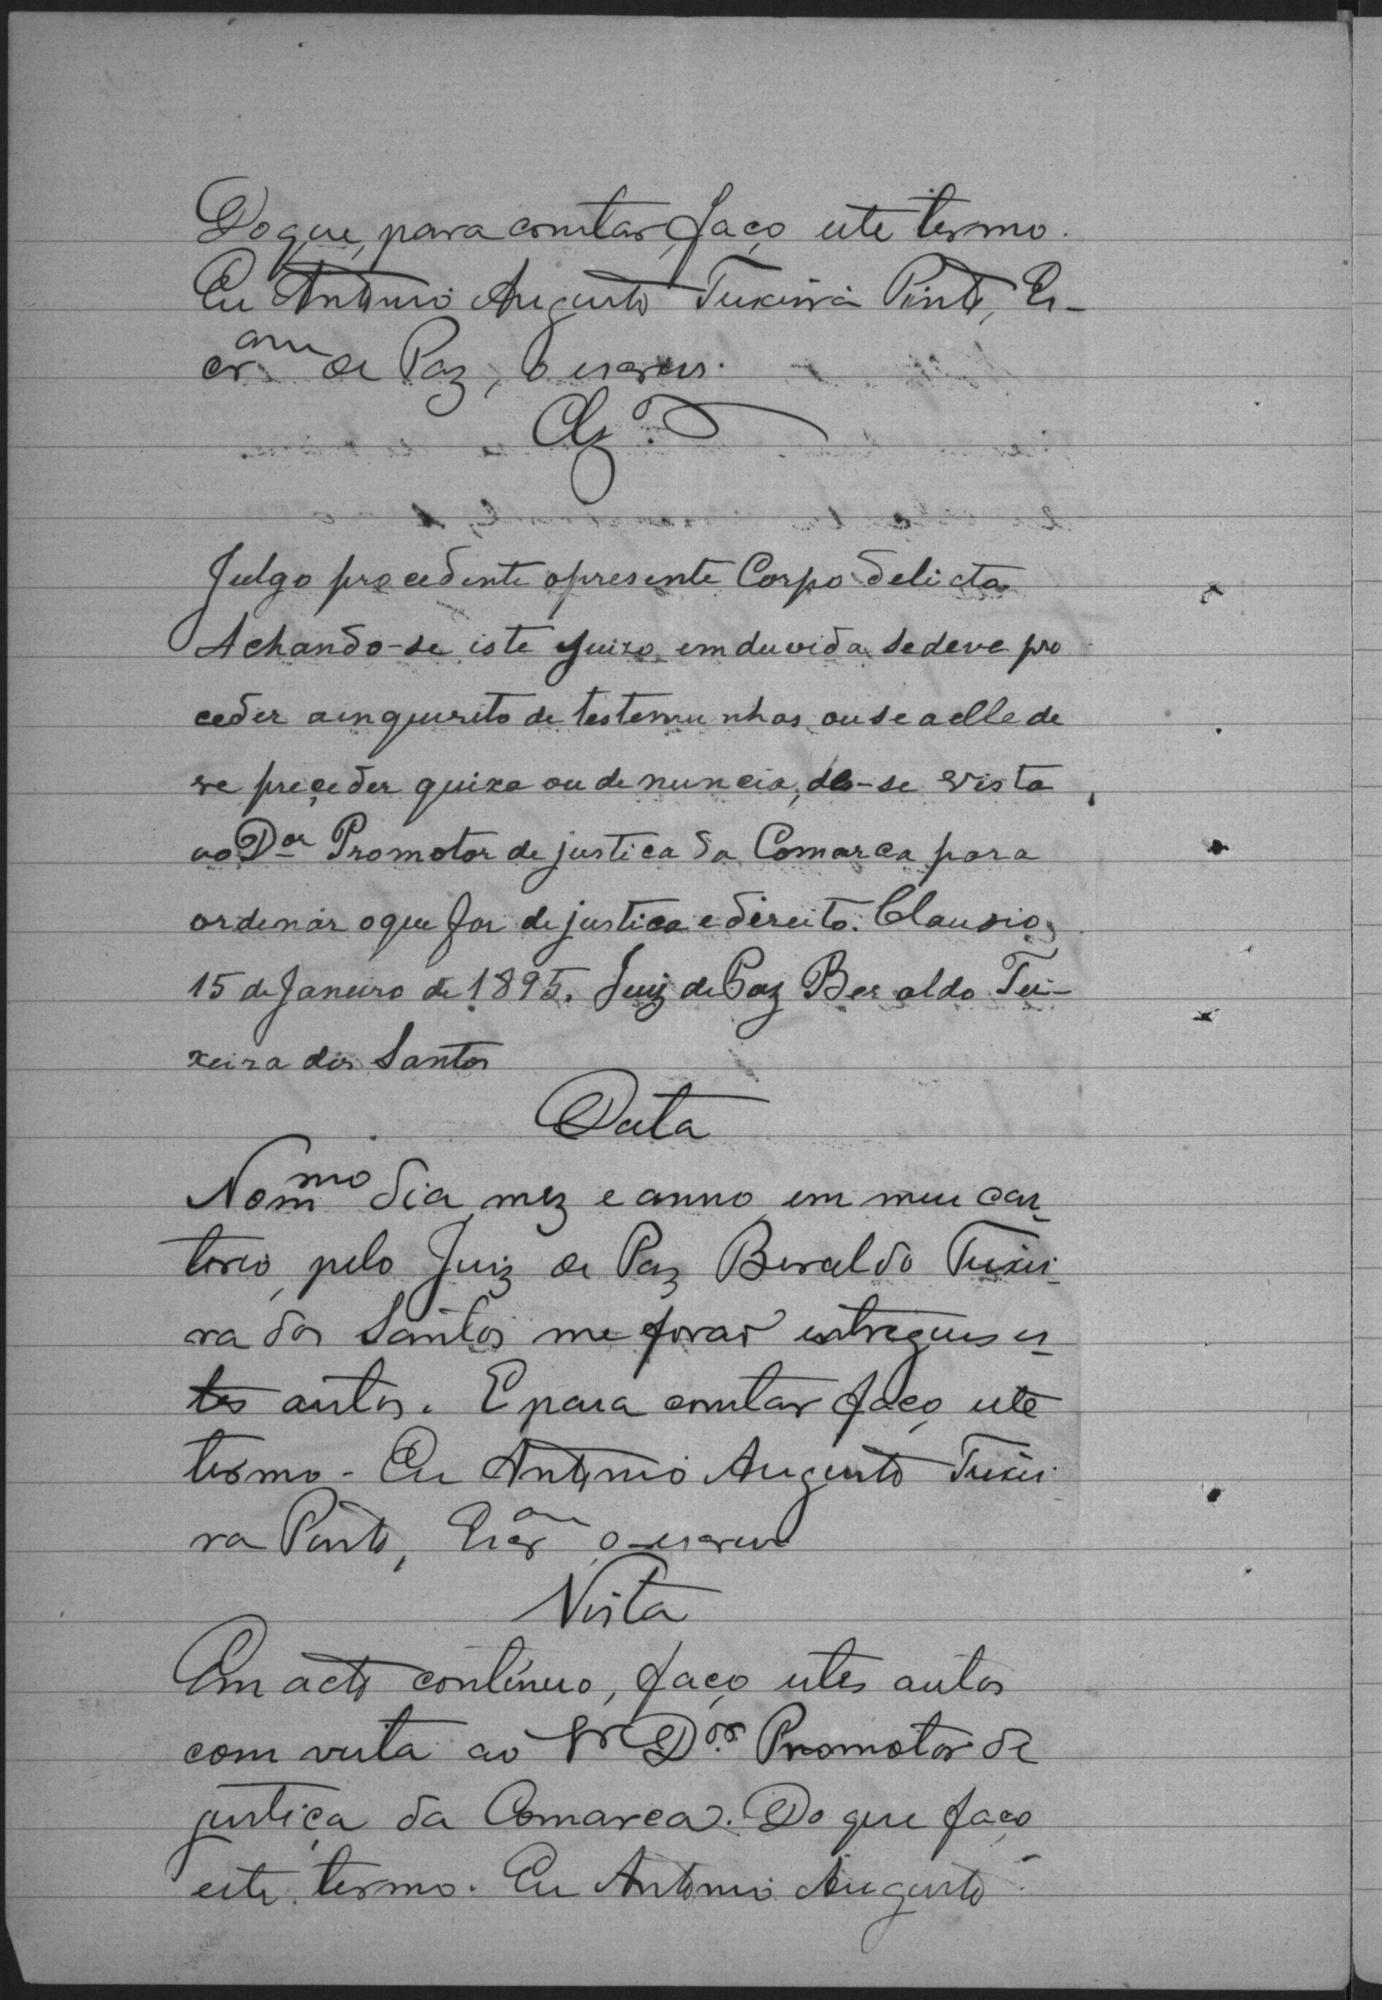 Do que, para constar, faço este termo.
Eu Antonio Augusto Teixeira Pinto, Es-
cram de Paz, o escrevi.
Clz.
Julgo procedente opresente Corpo delicto
Achando-se iste Juizo em duvida se deve pro
ceder a inquerito de testemunhas ou se a elle de
ve preceder queixa ou denuncia, dê-se vista
ao Dor Promotor de justica da Comarca para
ordenar oque for de justica e direito. Claudio,
15 de Janeiro de 1895. Juiz de Paz Beraldo Tei-
xeira dos Santos
Data
No mmo dia, mez e anno, em meu car-
torio, pelo Juiz de Paz Beraldo Teixei-
ra dos Santos me forão entregues es-
tes autos. E para constar faço este
termo - Eu Antonio Augusto Teixei-
ra Pinto, Escram o escrevi
Vista
Em acto continuo, faço estes autos
com vista ao Sr Dor. Promotor de
justiça da Comarca. Do que faço
este termo. Eu Antonio Augusto